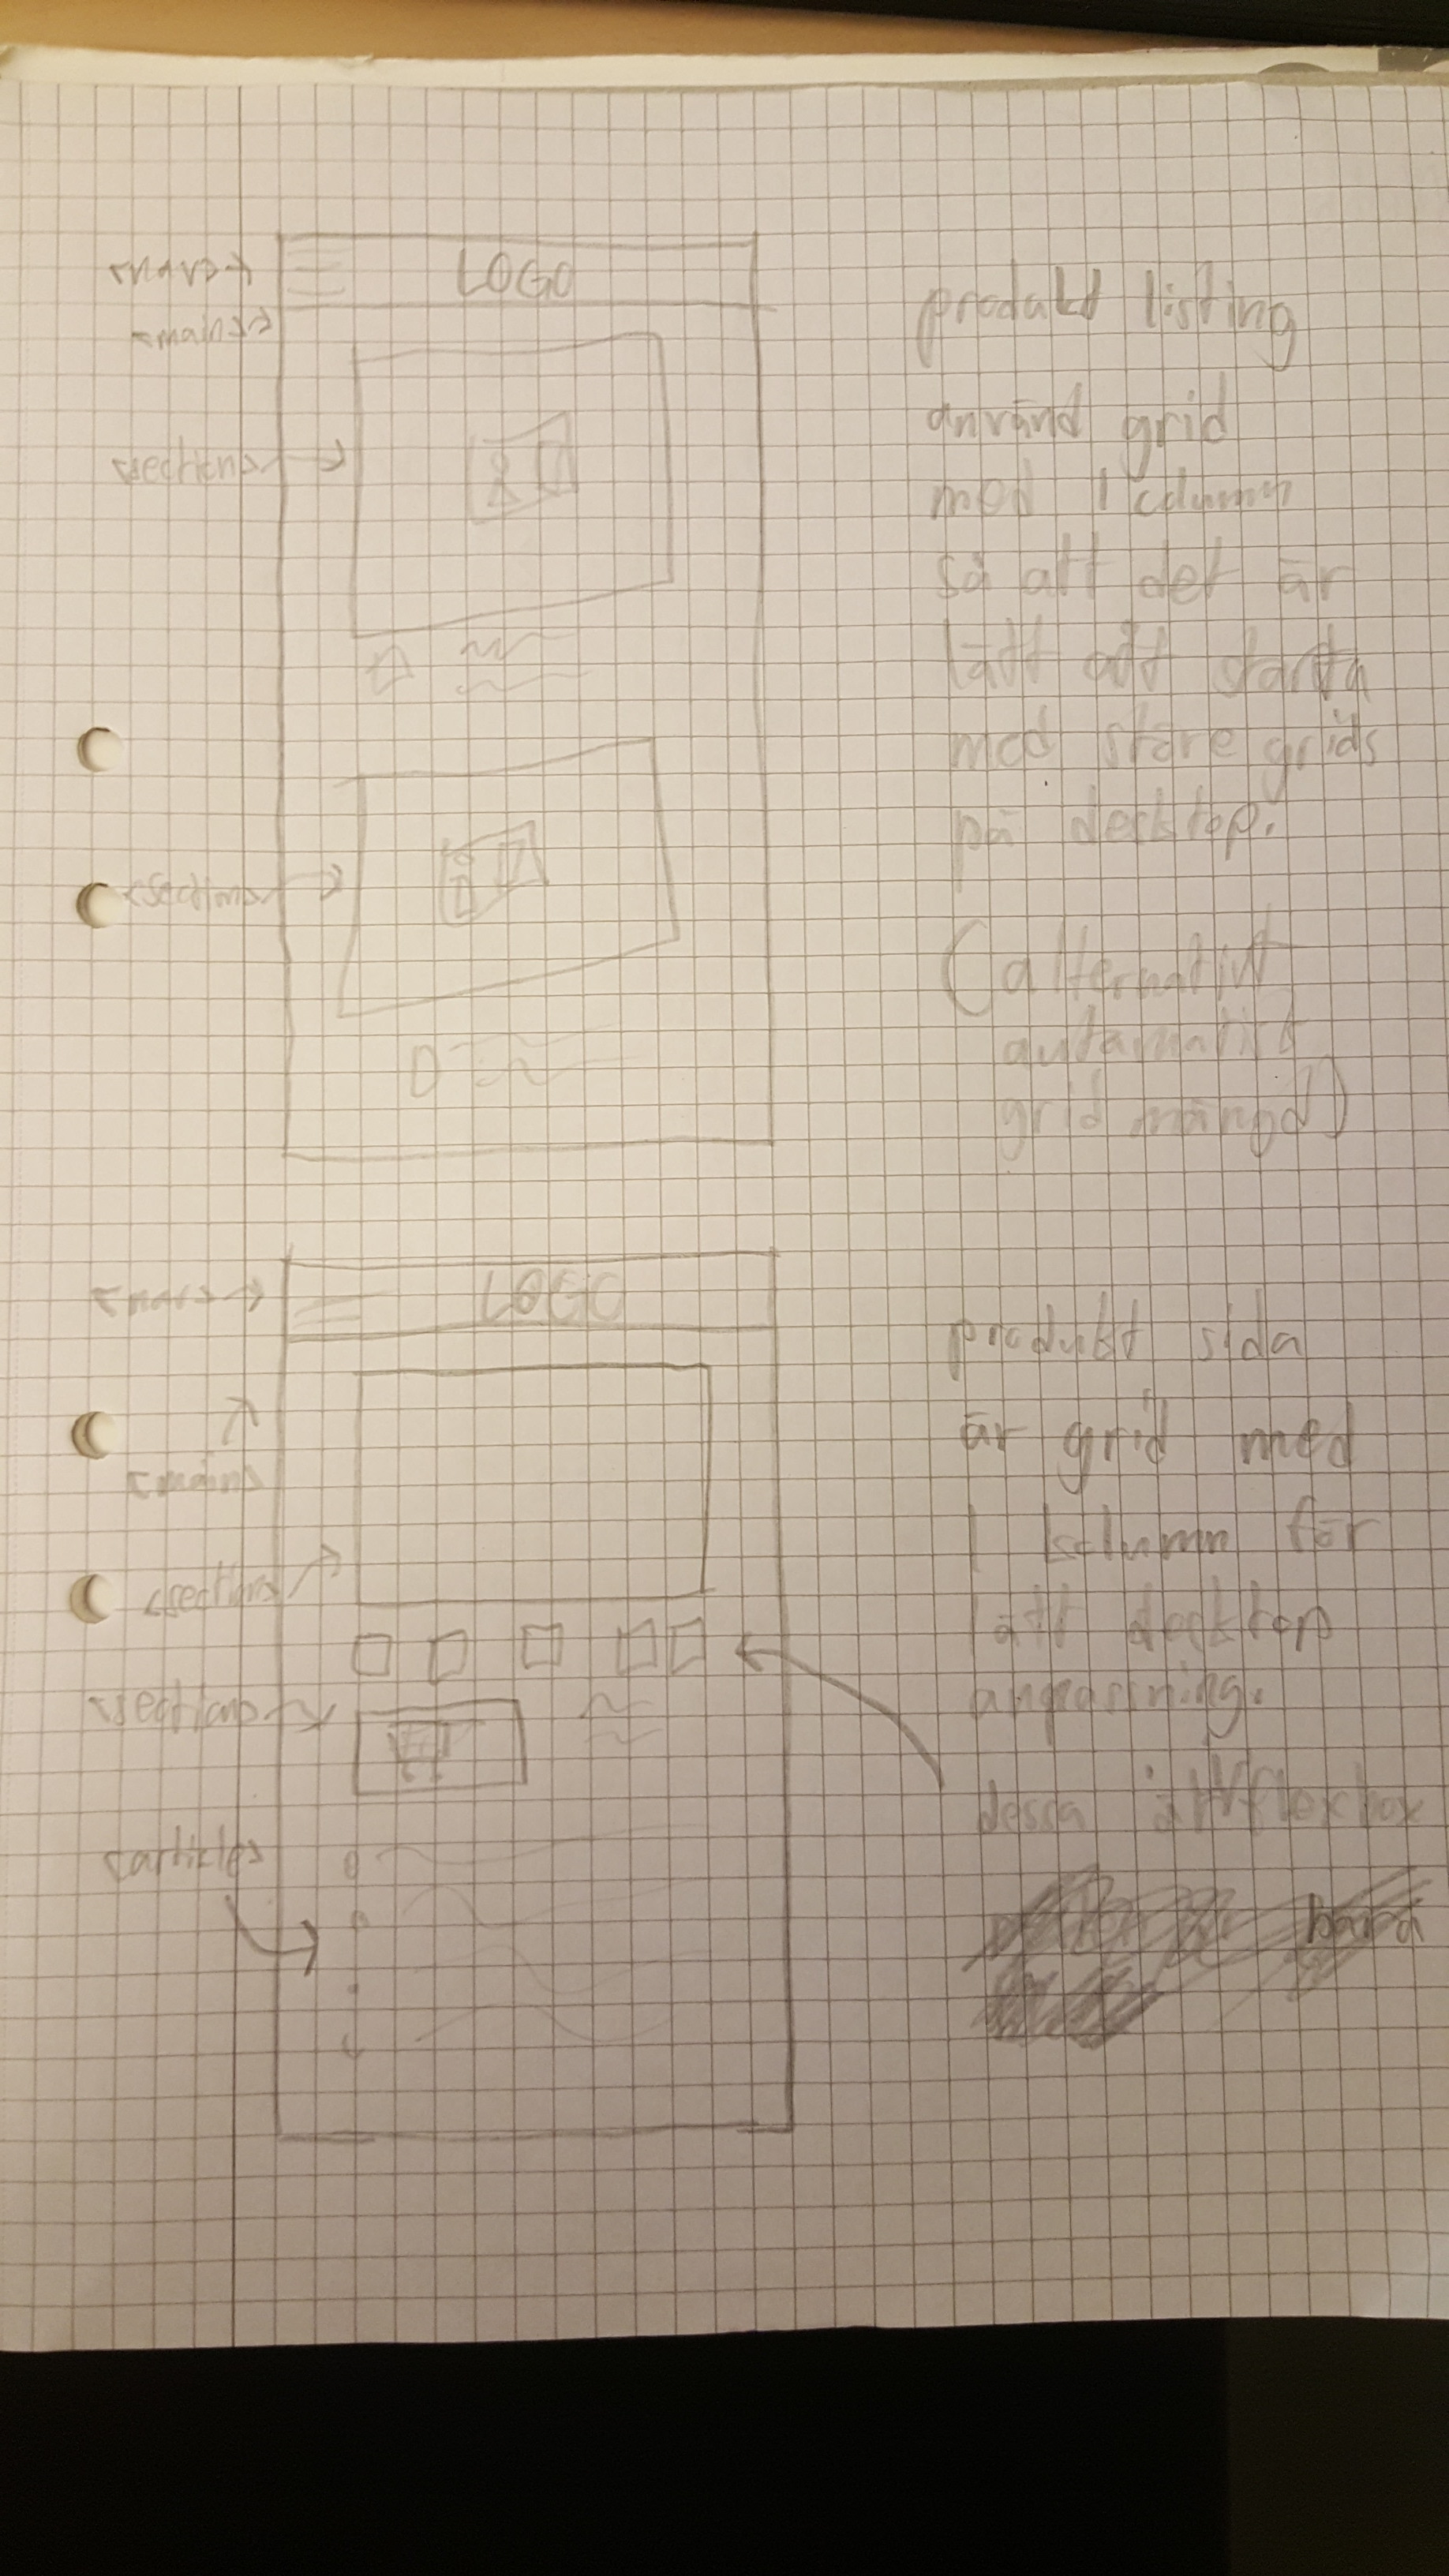 <nav>
LOGO
<main>
<section>
<section>
produkt listing
använd grid
med 1 column
så att det är
lätt att starta
med störe grids
på desktop.
(alternativt
automatisk
grid mängd)
<nav>
LOGO
<main>
<section>
<section>
<article>
produkt sida
är grid med
1 kolumn för
lätt desktop
anpassning.
dessa är flexbox
bara